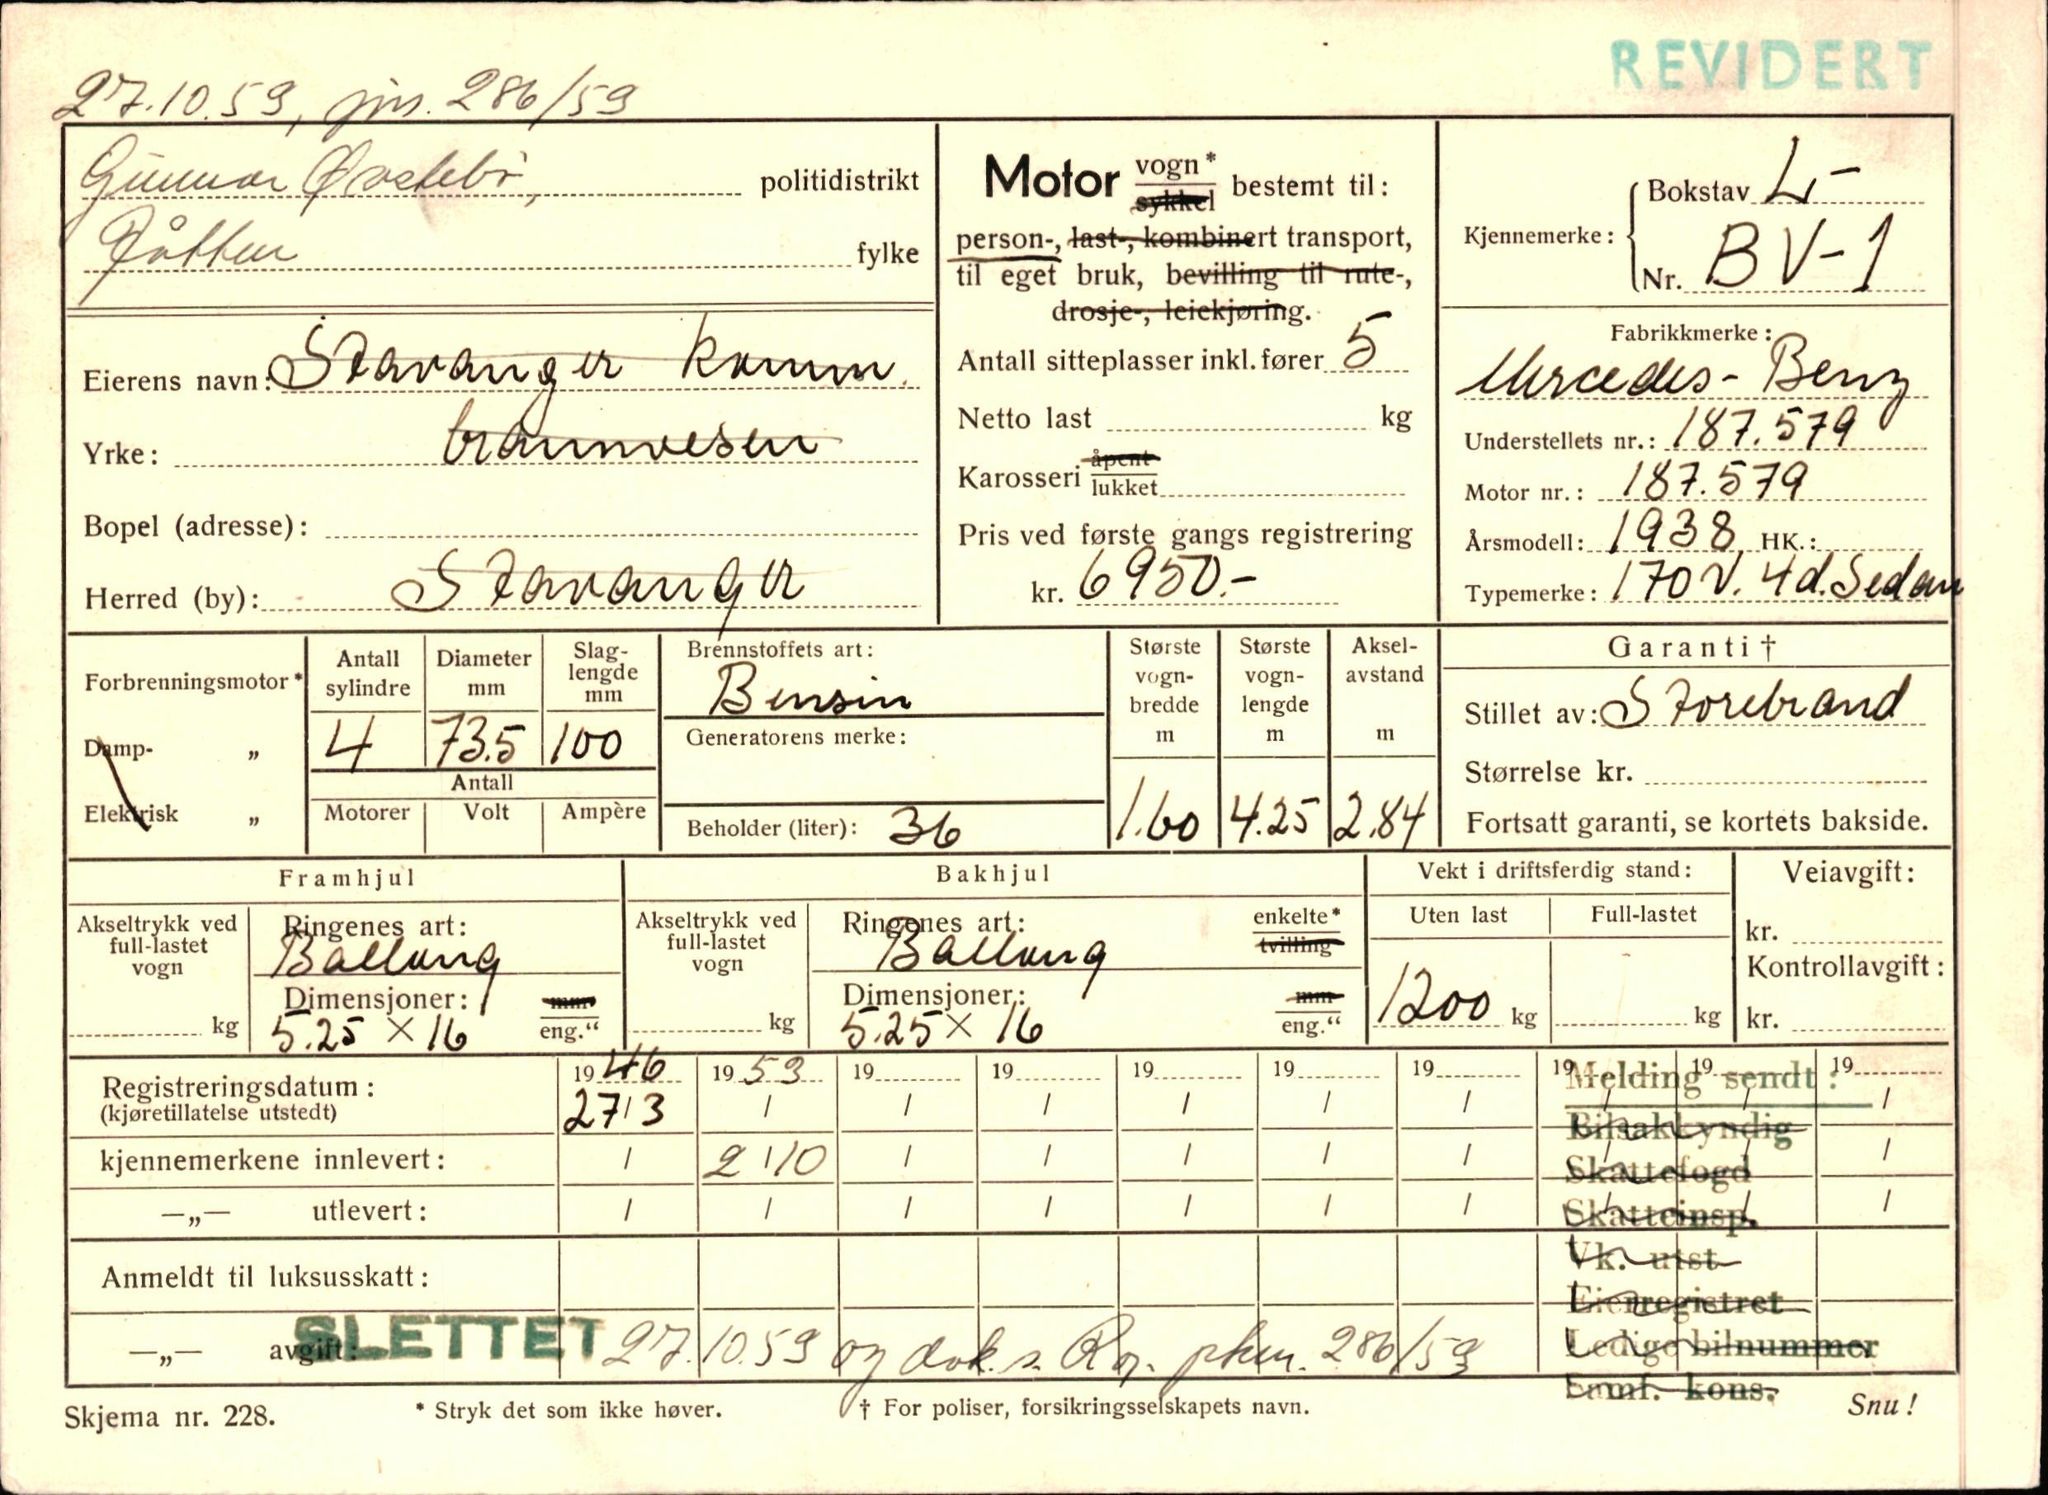 REVIDERT
27.10.59, jnr. 286/59
Gunnar Østebø, politidistrikt
fylke
Eierens navn: Stavanger komm.
Yrke: brannvesen
Bopel (adresse):
Herred (by): Stavanger
Motor vogn* sykkel bestemt til:
person-, last-, kombinert transport,
til eget bruk, bevilling til rute-,
drosje-, leiekjøring.
Antall sitteplasser inkl. fører 5
Netto last kg
Karosseri åpent lukket
Pris ved første gangs registrering
kr. 6950.-
Kjennemerke: Bokstav L-
Nr. BV-1
Fabrikkmerke:
Mercedes-Benz
Understellets nr.: 187.579
Motor nr.: 187.579
Årsmodell: 1938 HK.:
Typemerke: 170 V. 4d. Sedan
Forbrenningsmotor*
Damp- „
Elektrisk „
Antall sylindre
4
Diameter mm
73.5
Slag-lengde mm
100
Antall
Motorer Volt Ampère
Brennstoffets art:
Bensin
Generatorens merke:
Beholder (liter): 36
Største vogn-bredde m
1.60
Største vogn-lengde m
4.25
Aksel-avstand m
2.84
Garanti †
Stillet av: Storebrand
Størrelse kr.
Fortsatt garanti, se kortets bakside.
Framhjul
Akseltrykk ved full-lastet vogn
kg
Ringenes art:
Ballong
Dimensjoner: mm
5.25 × 16 eng.“
Bakhjul
Akseltrykk ved full-lastet vogn
kg
Ringenes art: enkelte*
Ballong tvilling
Dimensjoner: mm
5.25 × 16 eng.“
Vekt i driftsferdig stand:
Uten last Full-lastet
1200 kg kg
Veiavgift:
kr.
Kontrollavgift:
kr.
Registreringsdatum: 1946 1953 19 19 19 19 19 19 19 19
(kjøretillatelse utstedt) 27/3 / / / / / / / / /
kjennemerkene innlevert: / 2/10 / / / / / / / /
—„— utlevert: / / / / / / / / / /
Anmeldt til luksusskatt:
—„— avgift: SLETTET 27.10.59 og dok. s. Rg. 286/59
Melding sendt:
Bilsakkyndig
Skattefogd
Skatteinsp.
Vk. utst
Eierregistret
Ledige bilnummer
kons.
Skjema nr. 228. * Stryk det som ikke høver. † For poliser, forsikringsselskapets navn. Snu!